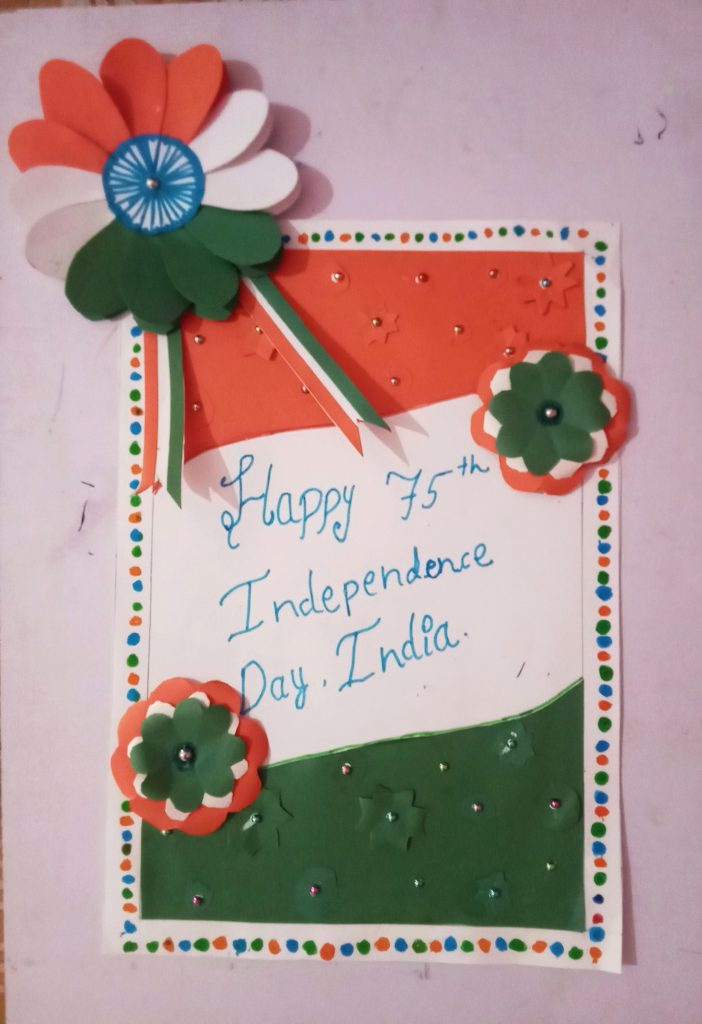 Happy 75th
Independence
Day. India.